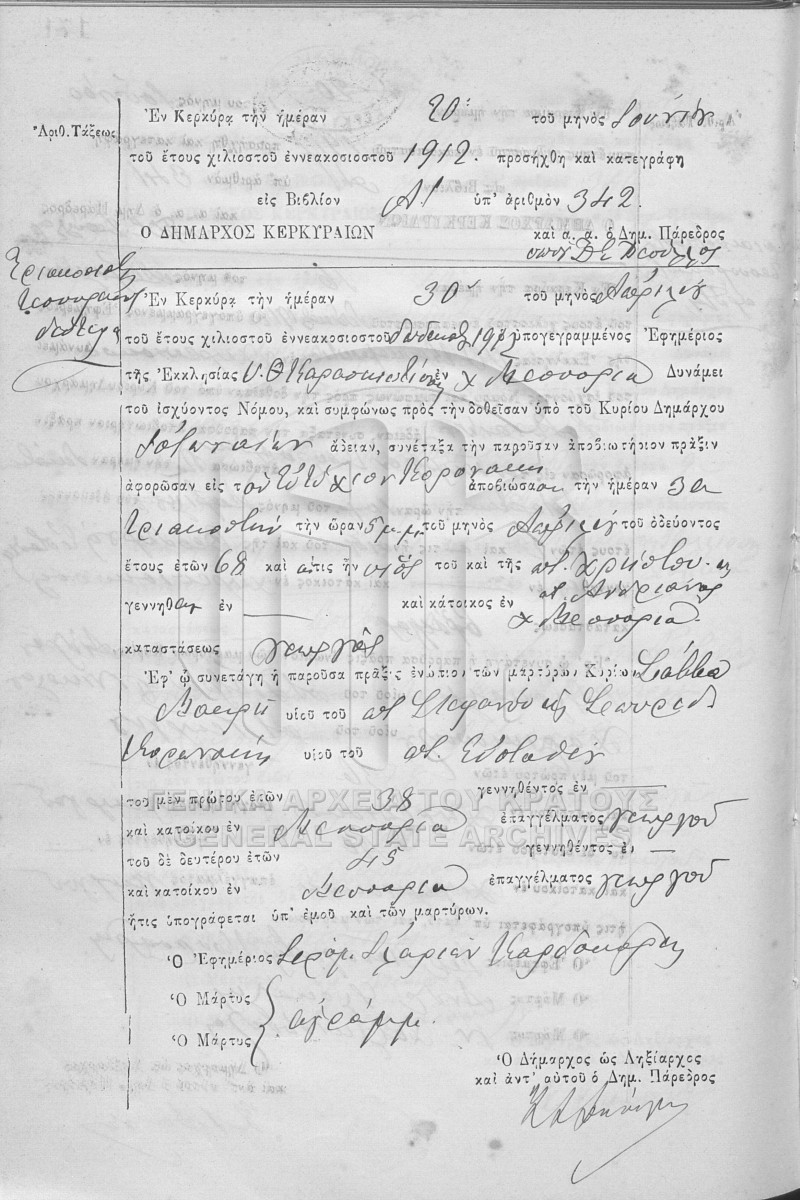 Ἀριθ. Τάξεως
Ἐν Κερκύρᾳ τὴν ἡμέραν 20' τοῦ μηνὸς Ἰουνίου
τοῦ ἔτους χιλιοστοῦ ἐννεακοσιοστοῦ 1912. προσήχθη καὶ κατεγράφη
εἰς Βιβλίον Α' ὑπ' ἀριθμὸν 342.
Ὁ ΔΗΜΑΡΧΟΣ ΚΕΡΚΥΡΑΙΩΝ καὶ α. α. ὁ Δημ. Πάρεδρος
Τριακοσιοστὴ
Τεσσαρακοστὴ
δευτέρα
Ἐν Κερκύρᾳ τὴν ἡμέραν 30' τοῦ μηνὸς Ἀπριλίου
τοῦ ἔτους χιλιοστοῦ ἐννεακοσιοστοῦ 1912 ὁ ὑπογεγραμμένος Ἐφημέριος
τῆς Ἐκκλησίας Υ. Θ. ἐν χ Δυνάμει
τοῦ ἰσχύοντος Νόμου, καὶ συμφώνως πρὸς τὴν δοθεῖσαν ὑπὸ τοῦ Κυρίου Δημάρχου
ἄδειαν, συνέταξα τὴν παροῦσαν ἀποβιωτήριον πρᾶξιν
ἀφορῶσαν εἰς τὸν Εὐτύχιον Κορωνάκη ἀποβιώσαντα τὴν ἡμέραν 30
Τριακοστὴν τὴν ὥραν 5 μ.μ. τοῦ μηνὸς Ἀπριλίου τοῦ ὁδεύοντος
ἔτους ἐτῶν 68 καὶ ὅστις ἦν υἱὸς τοῦ καὶ τῆς ποτ. Χρήστου κ
γεννηθεὶς ἐν — καὶ κάτοικος ἐν ποτ. Ἀνδριανῆς
χ
καταστάσεως γεωργὸς
Ἐφ' ᾧ συνετάγη ἡ παροῦσα πρᾶξις ἐνώπιον τῶν μαρτύρων Κυρίων Σάββα
υἱοῦ τοῦ ποτ. Στεφάνου κ Σπυρίδ.
Κορωνάκη υἱοῦ τοῦ ποτ. Εὐσταθίου
τοῦ μὲν πρώτου ἐτῶν 38 γεννηθέντος ἐν —
καὶ κατοίκου ἐν ἐπαγγέλματος γεωργοῦ
τοῦ δὲ δευτέρου ἐτῶν 45 γεννηθέντος ἐν —
καὶ κατοίκου ἐν ἐπαγγέλματος γεωργοῦ
ἥτις ὑπογράφεται ὑπ' ἐμοῦ καὶ τῶν μαρτύρων.
Ὁ Ἐφημέριος Ἱερομ. Ἱλαρίων
Ὁ Μάρτυς
ἀγράμμ.
Ὁ Μάρτυς
Ὁ Δήμαρχος ὡς Ληξίαρχος
καὶ ἀντ' αὐτοῦ ὁ Δημ. Πάρεδρος
ΓΕΝΙΚΑ ΑΡΧΕΙΑ ΤΟΥ ΚΡΑΤΟΥΣ
GENERAL STATE ARCHIVES